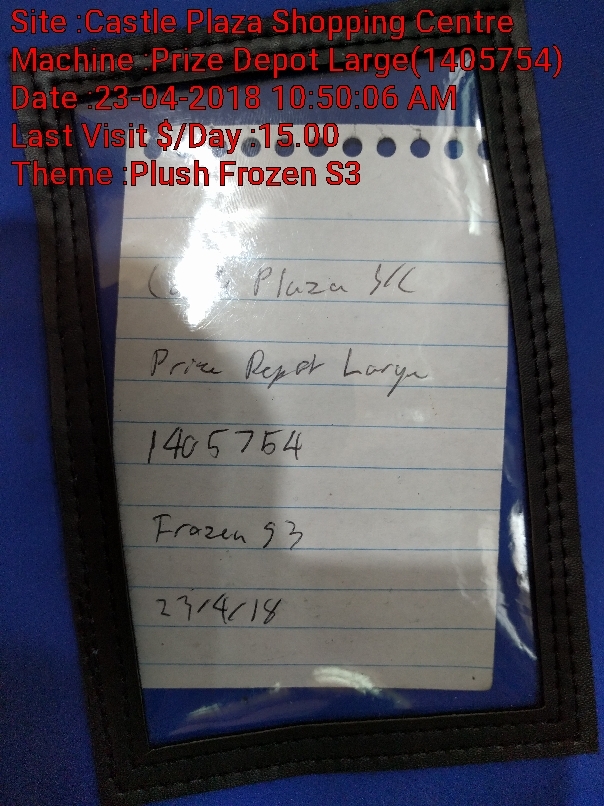 Site :Castle Plaza Shopping Centre
Machine :Prize Depot Large(1405754)
Date :23-04-2018 10:50:06 AM
Last Visit $/Day :15.00
Theme :Plush Frozen S3
Plaza S/C
Prize Depot Large
1405754
Frozen S3
23/4/18